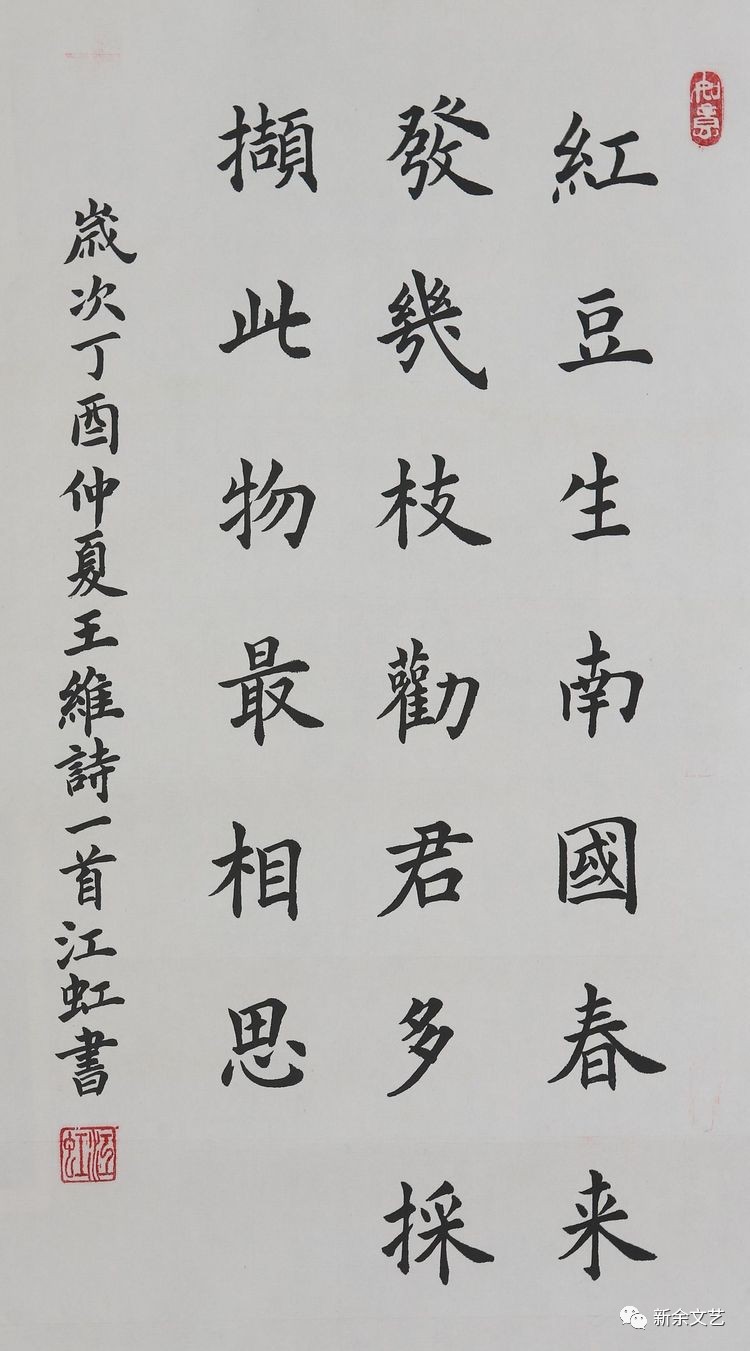 紅豆生南國春来
發幾枝勸君多採
擷此物最相思
歲次丁酉仲夏王維詩一首江虹書
如意
江虹
新余文艺